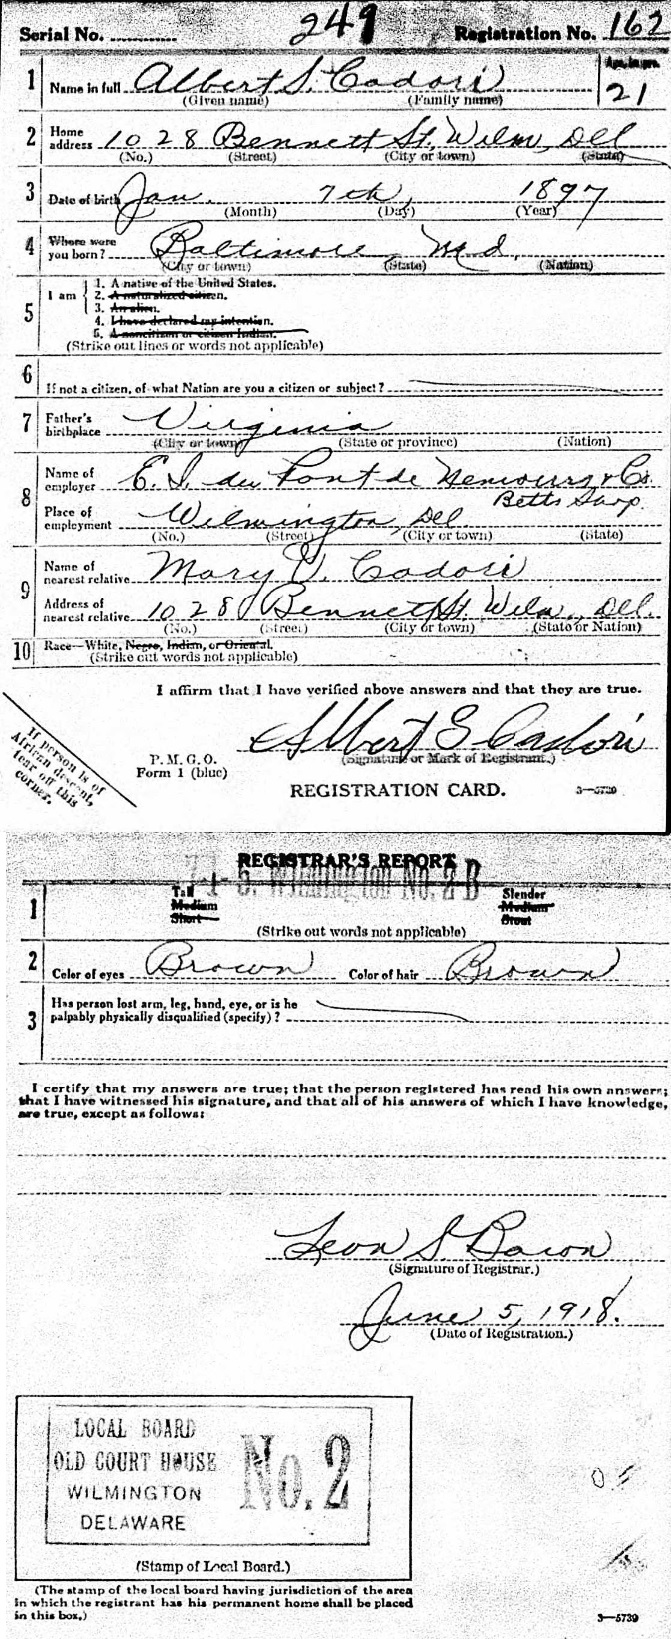 Serial No. 249 Registration No. 162
1 Name in full Albert S. Cadori Age, in yrs.
(Given name) (Family name) 21
2 Home address 1028 Bennett St. Wilm, Del
(No.) (Street) (City or town) (State)
3 Date of birth Jan. 7th, 1897
(Month) (Day) (Year)
4 Where were you born? Baltimore Md
(City or town) (State) (Nation)
5 I am
1. A native of the United States.
2. A naturalized citizen.
3. An alien.
4. I have declared my intention.
5. A noncitizen or citizen Indian.
(Strike out lines or words not applicable)
6 If not a citizen, of what Nation are you a citizen or subject?
7 Father's birthplace Virginia
(City or town) (State or province) (Nation)
8 Name of employer E. I. du Pont de Nemours & Co.
Betts
Place of employment Wilmington, Del
(No.) (Street) (City or town) (State)
9 Name of nearest relative Mary V. Cadori
Address of nearest relative 1028 Bennett St. Wilm., Del.
(No.) (Street) (City or town) (State or Nation)
10 Race—White, Negro, Indian, or Oriental.
(Strike out words not applicable)
I affirm that I have verified above answers and that they are true.
Albert S Cadori
(Signature or Mark of Registrant.)
P. M. G. O.
Form 1 (blue)
REGISTRATION CARD. 3—5739
If person is of
African descent,
tear off this
corner.
REGISTRAR'S REPORT
7-1-5. Wilmington No. 2 B
1 Tall Slender
Medium Medium
Short Stout
(Strike out words not applicable)
2 Color of eyes Brown Color of hair Brown
3 Has person lost arm, leg, hand, eye, or is he
palpably physically disqualified (specify)?
I certify that my answers are true; that the person registered has read his own answers;
that I have witnessed his signature, and that all of his answers of which I have knowledge,
are true, except as follows:
Leon S Bacon
(Signature of Registrar.)
June 5, 1918.
(Date of Registration.)
LOCAL BOARD
OLD COURT HOUSE
WILMINGTON
DELAWARE
No. 2
(Stamp of Local Board.)
(The stamp of the local board having jurisdiction of the area
in which the registrant has his permanent home shall be placed
in this box.)
3—5739